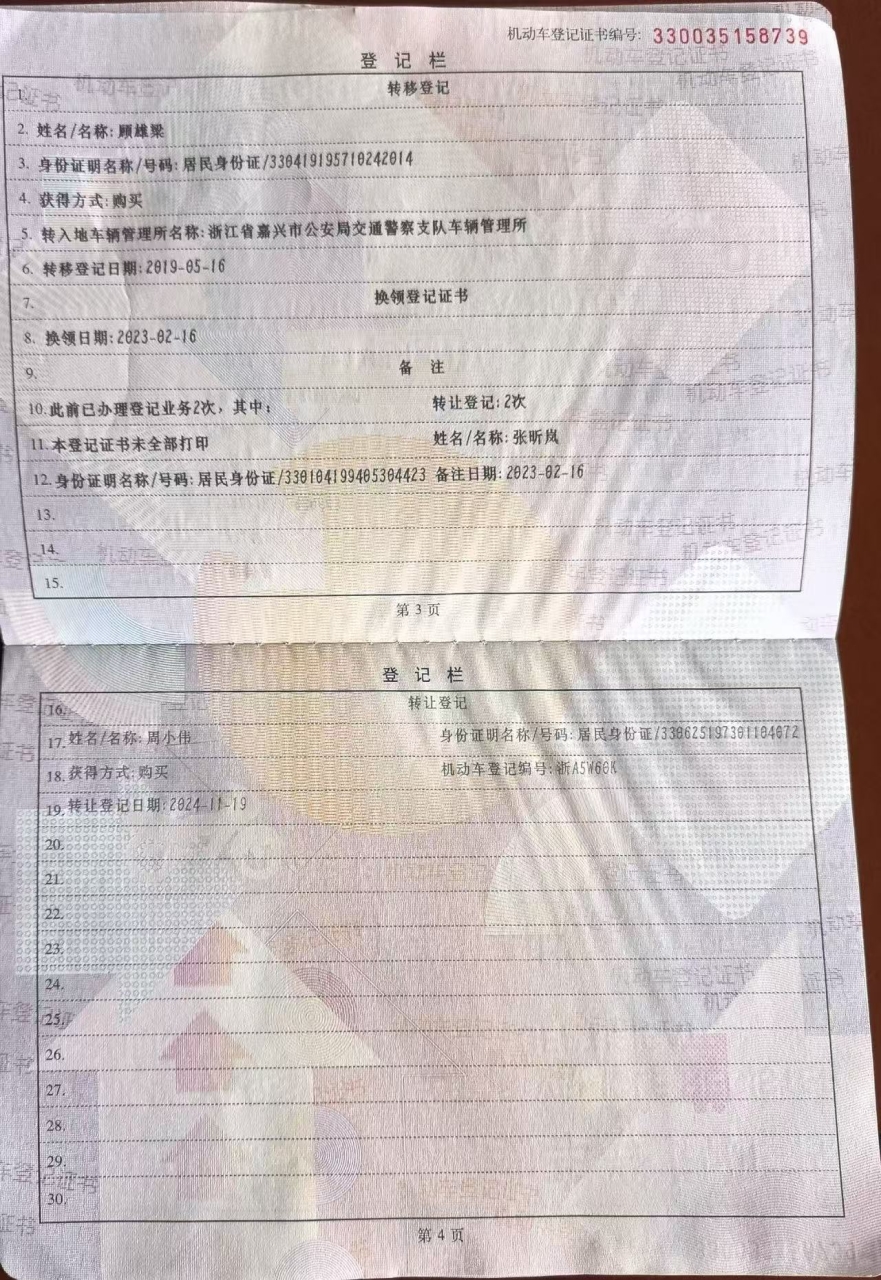 机动车登记证书编号: 330035158739
登 记 栏
1. 转移登记
2. 姓名/名称: 顾雄梁
3. 身份证明名称/号码: 居民身份证/330419195710242014
4. 获得方式: 购买
5. 转入地车辆管理所名称: 浙江省嘉兴市公安局交通警察支队车辆管理所
6. 转移登记日期: 2019-05-16
7. 换领登记证书
8. 换领日期: 2023-02-16
9. 备 注
10. 此前已办理登记业务2次，其中; 转让登记: 2次
11. 本登记证书未全部打印 姓名/名称: 张昕岚
12. 身份证明名称/号码: 居民身份证/330104199405304423 备注日期: 2023-02-16
13.
14.
15.
第 3 页
登 记 栏
16. 转让登记
17. 姓名/名称: 周小伟 身份证明名称/号码: 居民身份证/330625197301104072
18. 获得方式: 购买 机动车登记编号: 浙A5W60K
19. 转让登记日期: 2024-11-19
20.
21.
22.
23.
24.
25.
26.
27.
28.
29.
30.
第 4 页